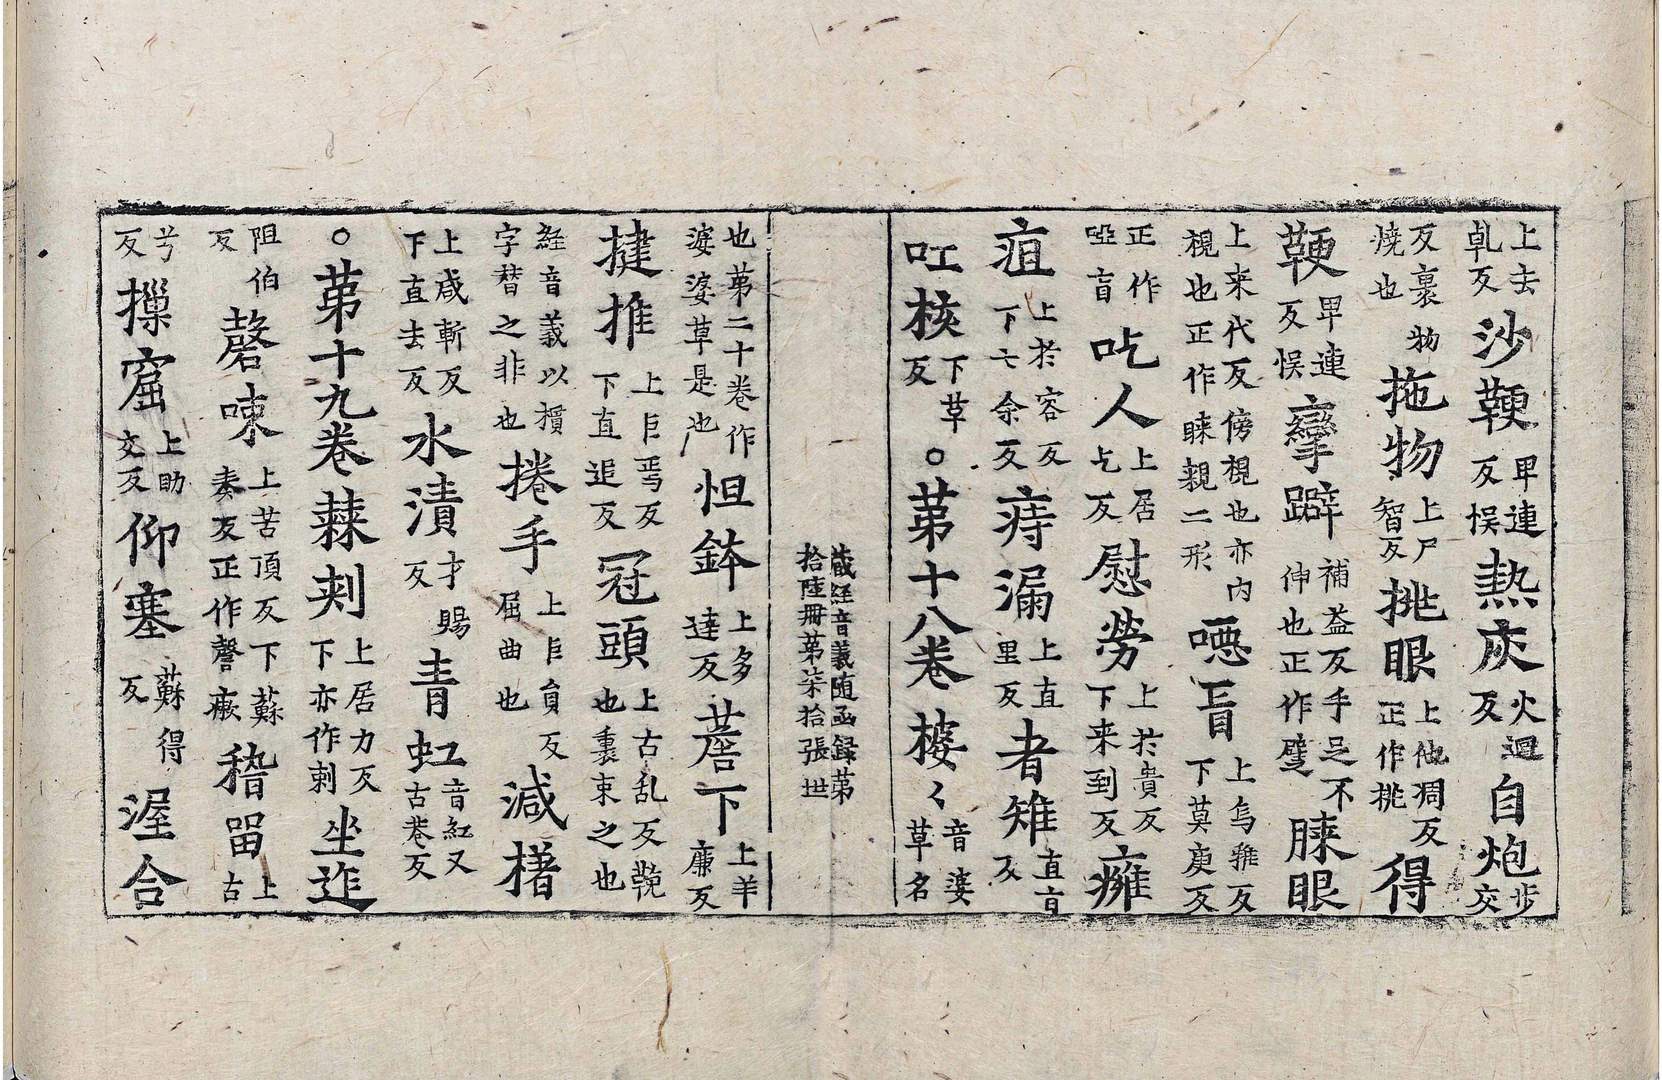 上去乹反沙鞕卑連反悮熱灰火迴反自炮步交
反裹物燒也拖物上尸智反挑眼上他凋反正作挑得
鞕卑連反悮攣躃補益反手足不伸也正作躄睞眼
上来代反傍視也亦內視也正作睞親二形啞盲上烏雅反下莫庚反
正作啞盲吃人上居乞反慰勞上於貴反下来到反癰
疽上於容反下七余反痔漏上直里反者雉直盲反
吐核下草反○苐十八卷蔢〻音婆草名
藏経音義随函録苐拾陸冊苐柒拾張世
也苐二十卷作婆婆草是也怛鉢上多達反薝下上羊廉反
揵推上巨焉反下直追反冠頭上古乱反鞔也裏束之也
経音義以攢字替之非也捲手上巨員反屈曲也減撯
上咸斬反下直去反水漬才賜反青虹音紅又古巷反
○苐十九卷蕀刾上居力反下亦作刺坐迮
阻伯反謦唻上苦頂反下蘇奏反正作謦瘶稽留上古
兮反摷窟上助交反仰塞蘇得反渥合